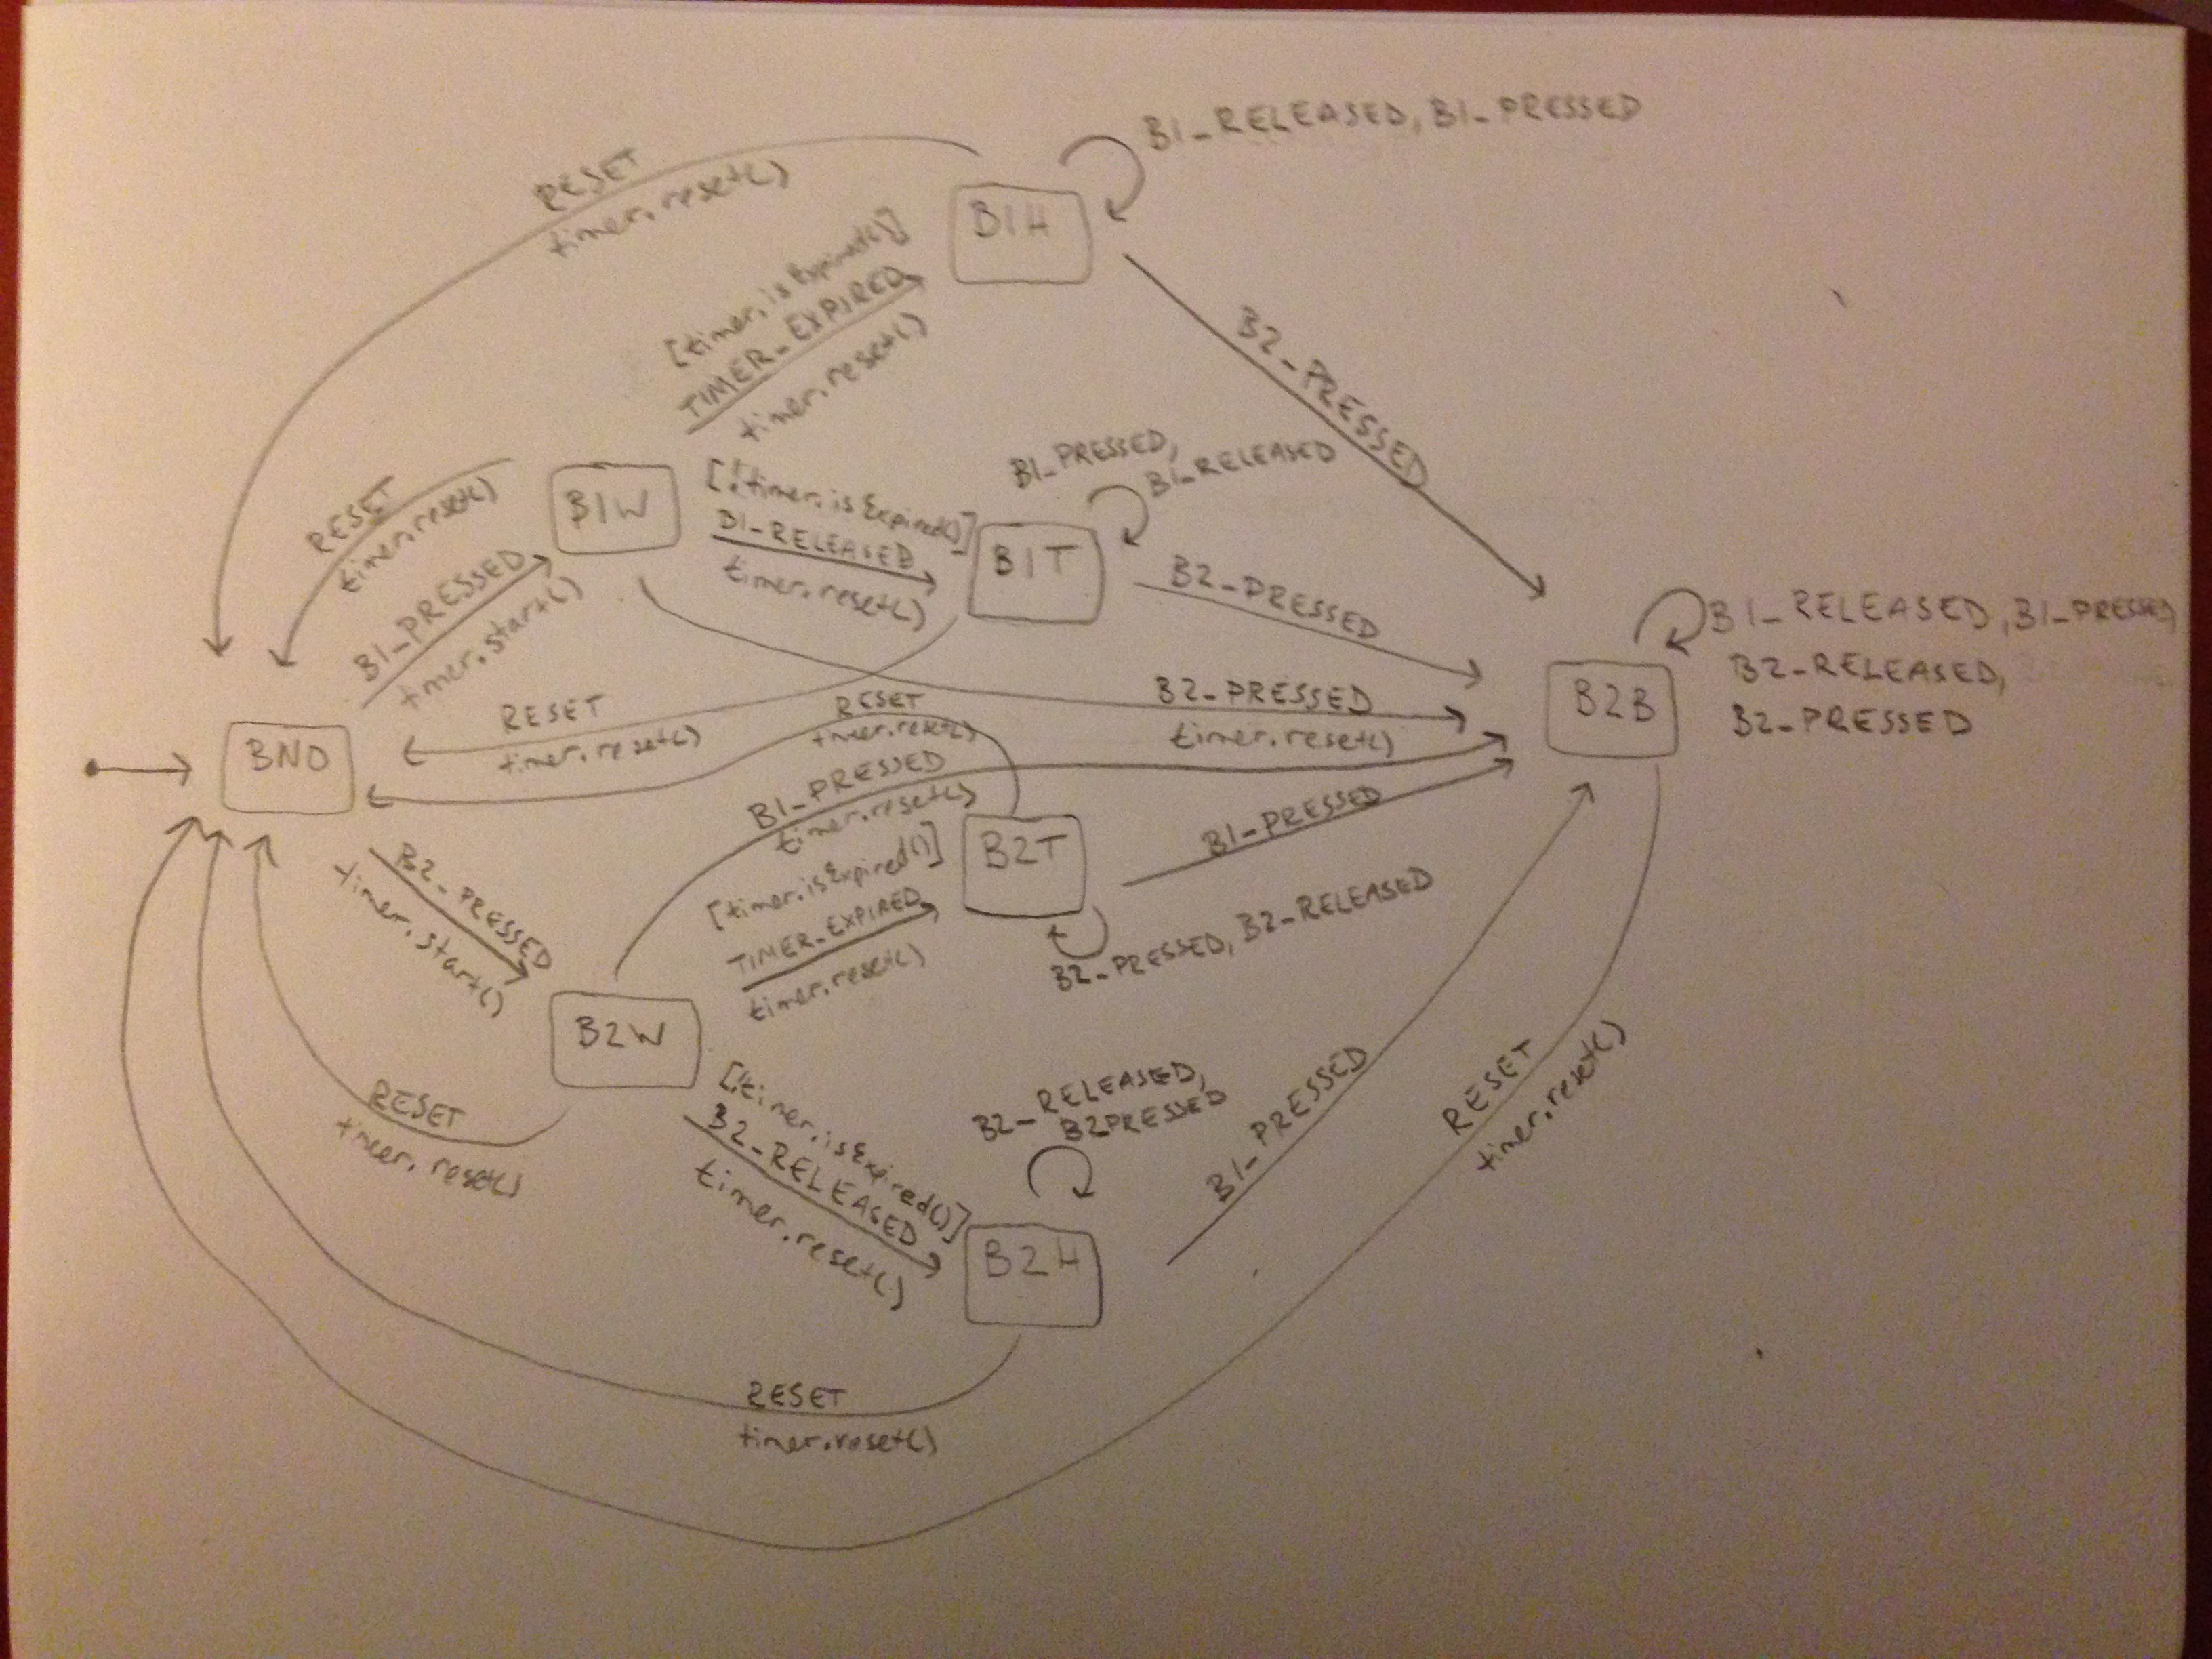 B1_RELEASED, B1_PRESSED
RESET
timer.reset()
B1H
[timer.isExpired()]
TIMER_EXPIRED
timer.reset()
B2_PRESSED
B1_PRESSED,
B1_RELEASED
RESET
timer.reset()
B1W
[!timer.isExpired()]
B1_RELEASED
timer.reset()
B1T
B1_PRESSED
timer.start()
B2_PRESSED
B1_RELEASED, B1_PRESSED
B2_RELEASED,
B2_PRESSED
B2B
RESET
timer.reset()
RESET
timer.reset()
B2_PRESSED
timer.reset()
BNO
B1_PRESSED
timer.reset()
B1_PRESSED
B2T
[timer.isExpired()]
TIMER_EXPIRED
timer.reset()
B2_PRESSED
timer.start()
B2_PRESSED, B2_RELEASED
B2W
RESET
timer.reset()
[!timer.isExpired()]
B2_RELEASED
timer.reset()
B2_RELEASED,
B2PRESSED
B1_PRESSED
RESET
timer.reset()
B2H
RESET
timer.reset()